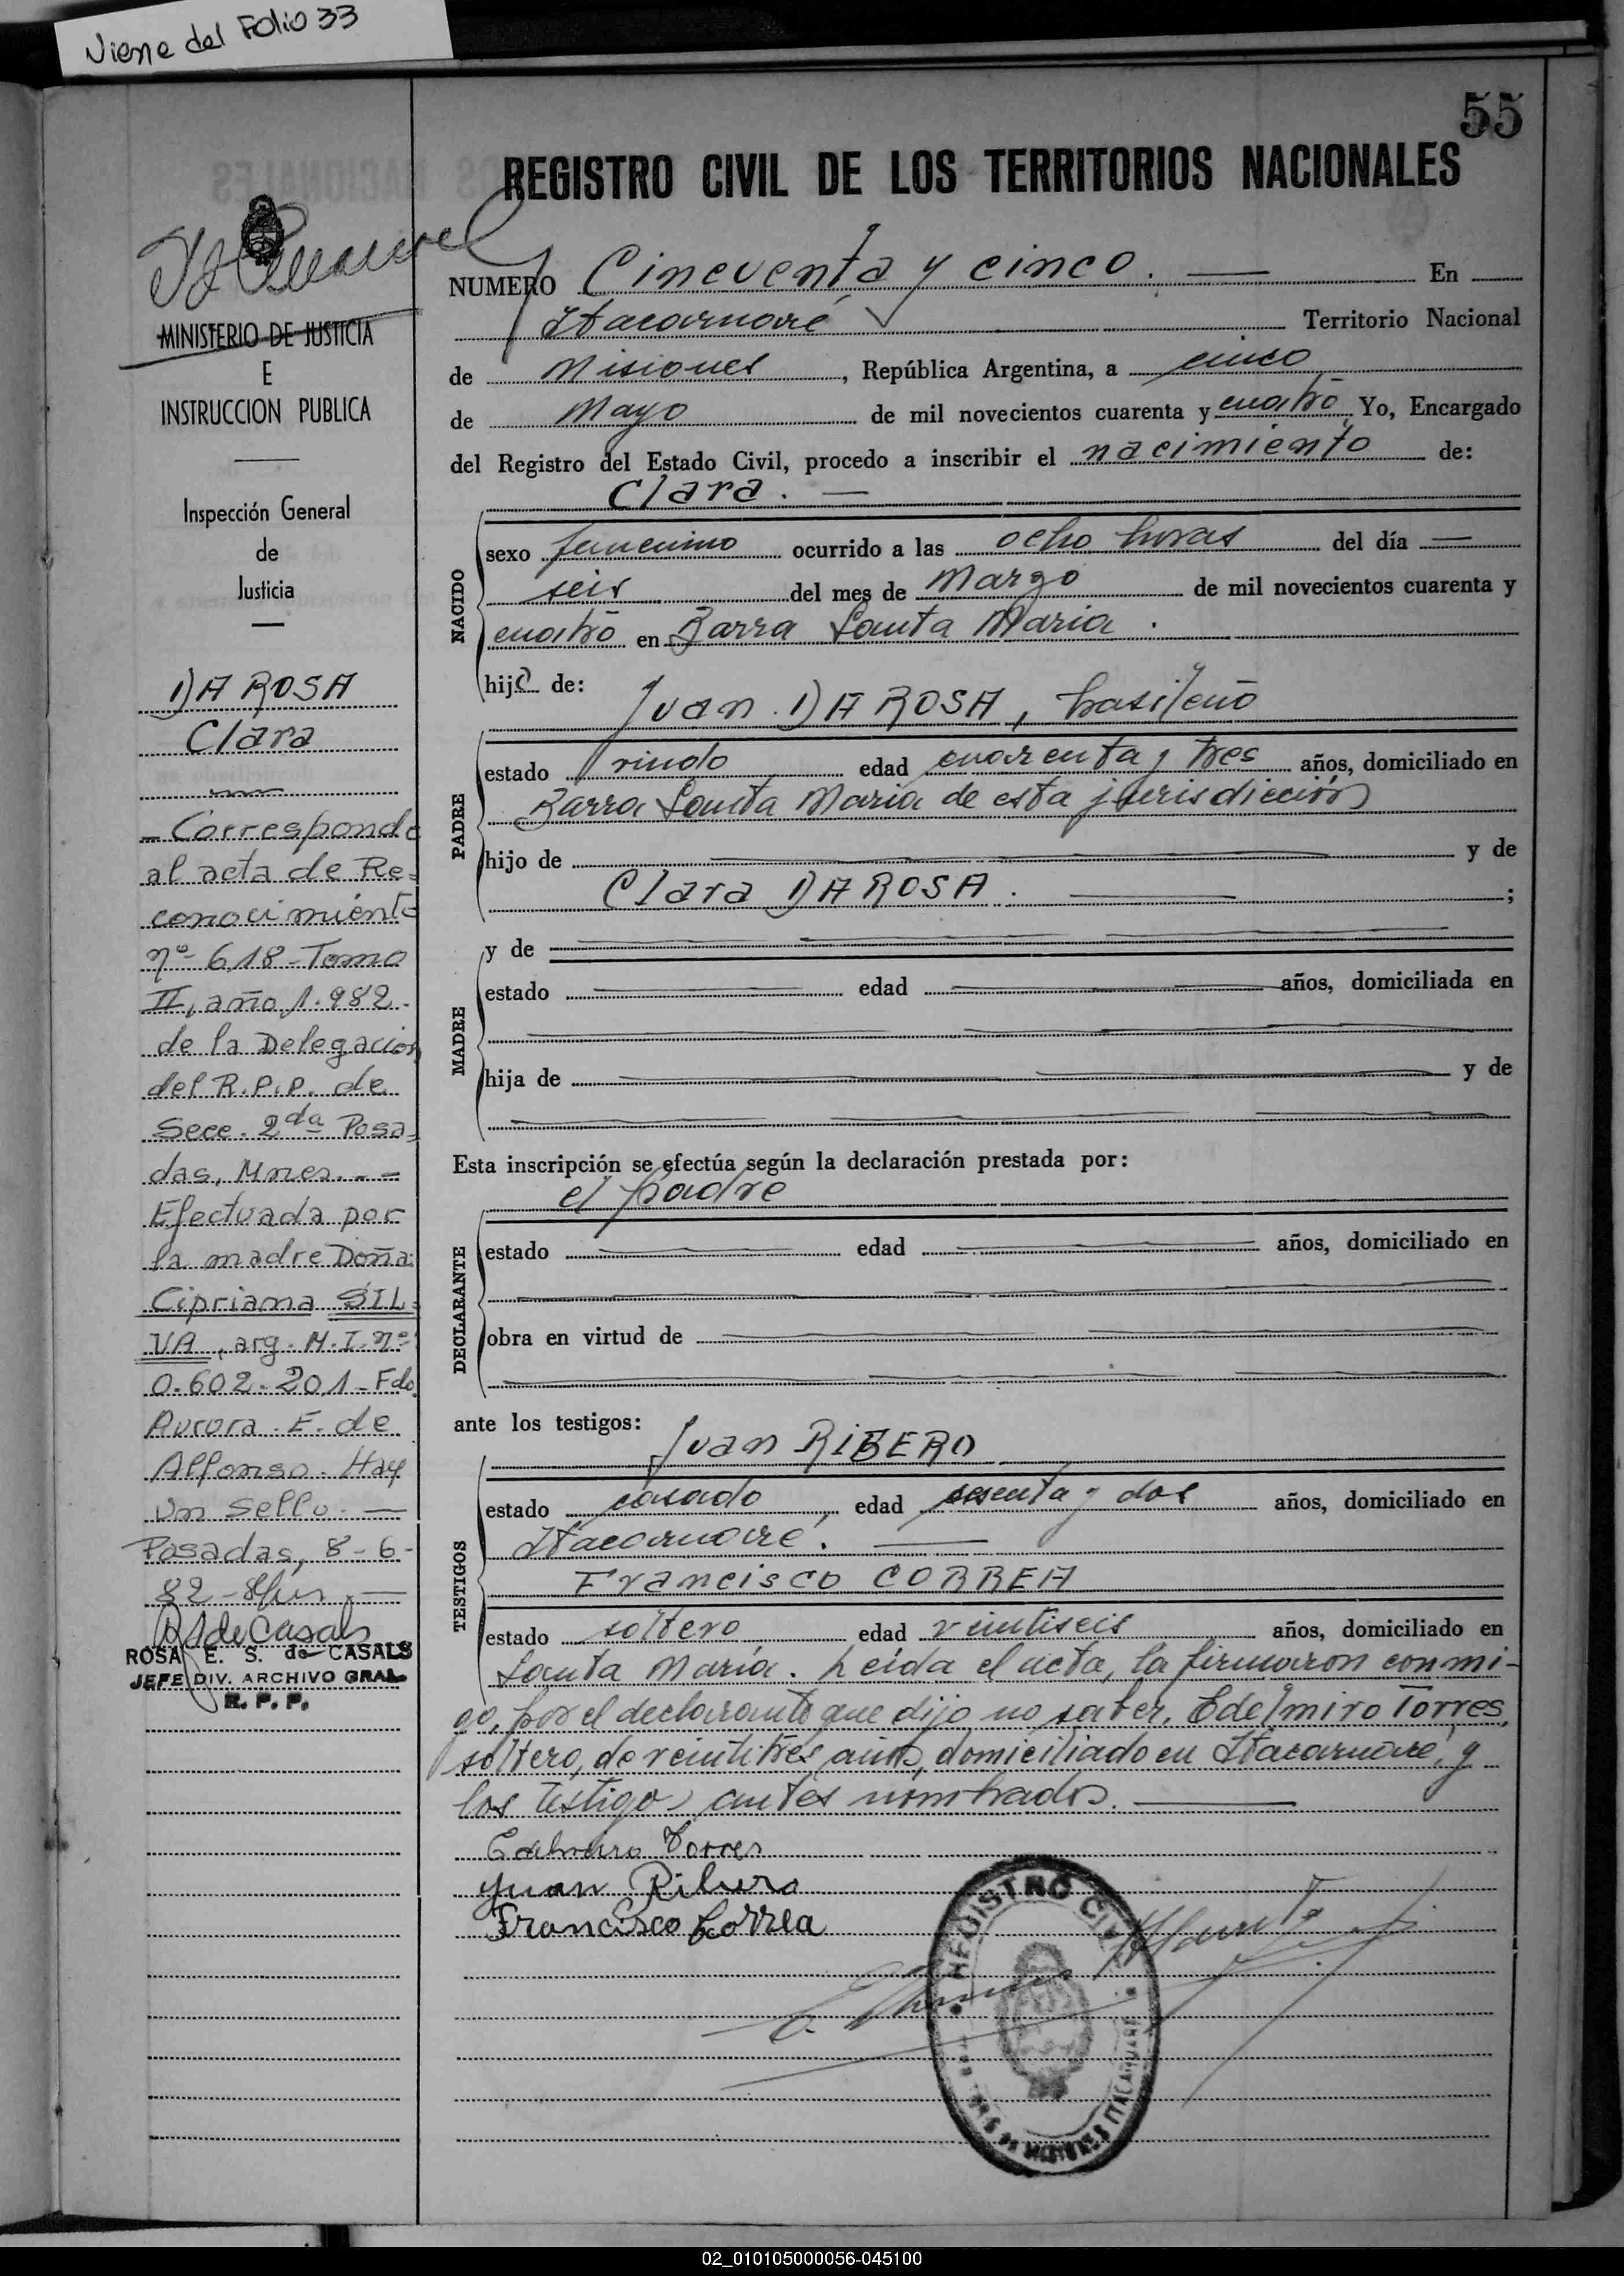 Viene del Folio 33
55
REGISTRO CIVIL DE LOS TERRITORIOS NACIONALES
NUMERO Cincuenta y cinco. — En
Itacaruaré Territorio Nacional
de Misiones, República Argentina, a cinco
de Mayo de mil novecientos cuarenta y cuatro Yo, Encargado
del Registro del Estado Civil, procedo a inscribir el nacimiento de:
Clara. —
NACIDO
sexo femenino ocurrido a las ocho horas del día —
seis del mes de Marzo de mil novecientos cuarenta y
cuatro en Barra Santa Maria.
hija de:
Juan DA ROSA, brasileño
PADRE
estado viudo edad cuarenta y tres años, domiciliado en
Barra Santa Maria de esta jurisdicción
hijo de y de
Clara DA ROSA. — ;
MADRE
y de
estado edad años, domiciliada en
hija de y de
Esta inscripción se efectúa según la declaración prestada por:
el padre
DECLARANTE
estado edad años, domiciliado en
obra en virtud de
ante los testigos:
Juan RIBERO
TESTIGOS
estado casado, edad sesenta y dos años, domiciliado en
Itacaruaré. —
Francisco CORREA
estado soltero edad veintiseis años, domiciliado en
Santa Maria. Leida el acta, la firmaron conmi-
go, por el declarante que dijo no saber, Edelmiro Torres,
soltero, de veintitrés años, domiciliado en Itacaruaré, y
los testigos antes nombrados. —
Edelmiro Torres
Juan Ribero
Francisco Correa
REGISTRO CIVIL
MISIONES ITACARUARE
MINISTERIO DE JUSTICIA
E
INSTRUCCION PUBLICA
Inspección General
de
Justicia
DA ROSA
Clara
- Corresponde
al acta de Re-
conocimiento
nº 618-Tomo
II, año 1.982.
de la Delegación
del R.P.P. de
Secc. 2da Posa-
das, Mnes. - =
Efectuada por
la madre Doña:
Cipriana SIL-
VA, arg. M.I. nº
0.602.201-Fdo.
Aurora E. de
Alfonso. Hay
un sello. —
Posadas, 8-6-
82
ROSA E. S. de CASALS
JEFE DIV. ARCHIVO GRAL.
R. P. P.
02_010105000056-045100